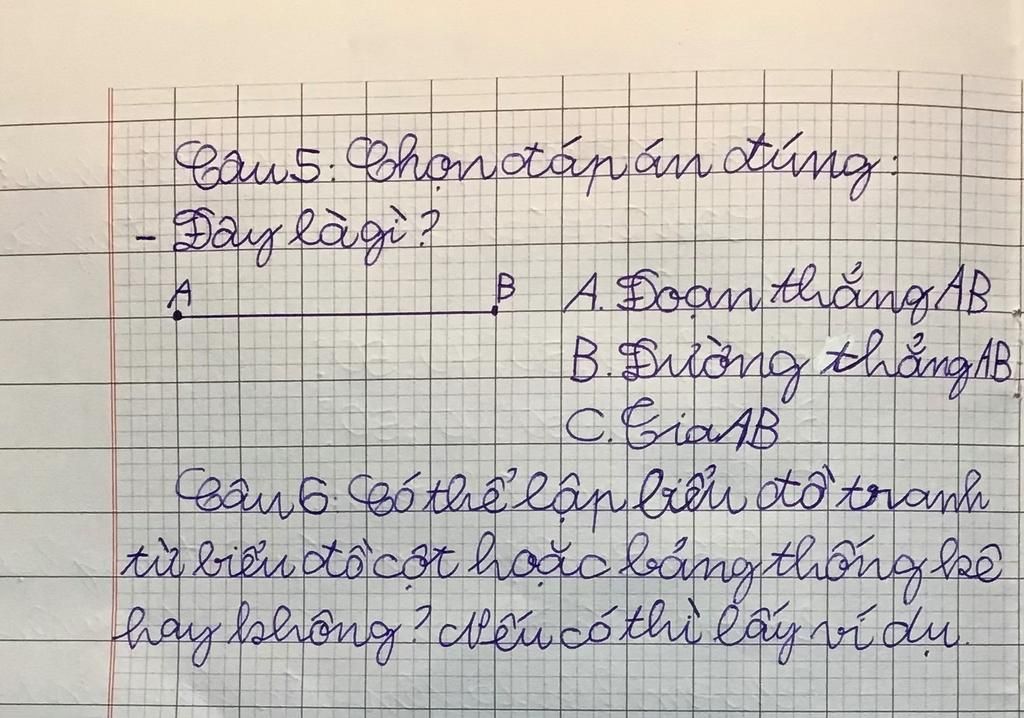 Câu 5: Chọn đáp án đúng:
- Đây là gì?
A B A. Đoạn thẳng AB
B. Đường thẳng AB
C. Tia AB
Câu 6: Có thể lập biểu đồ tranh
từ biểu đồ cột hoặc bảng thống kê
hay không? Nếu có thì lấy ví dụ.